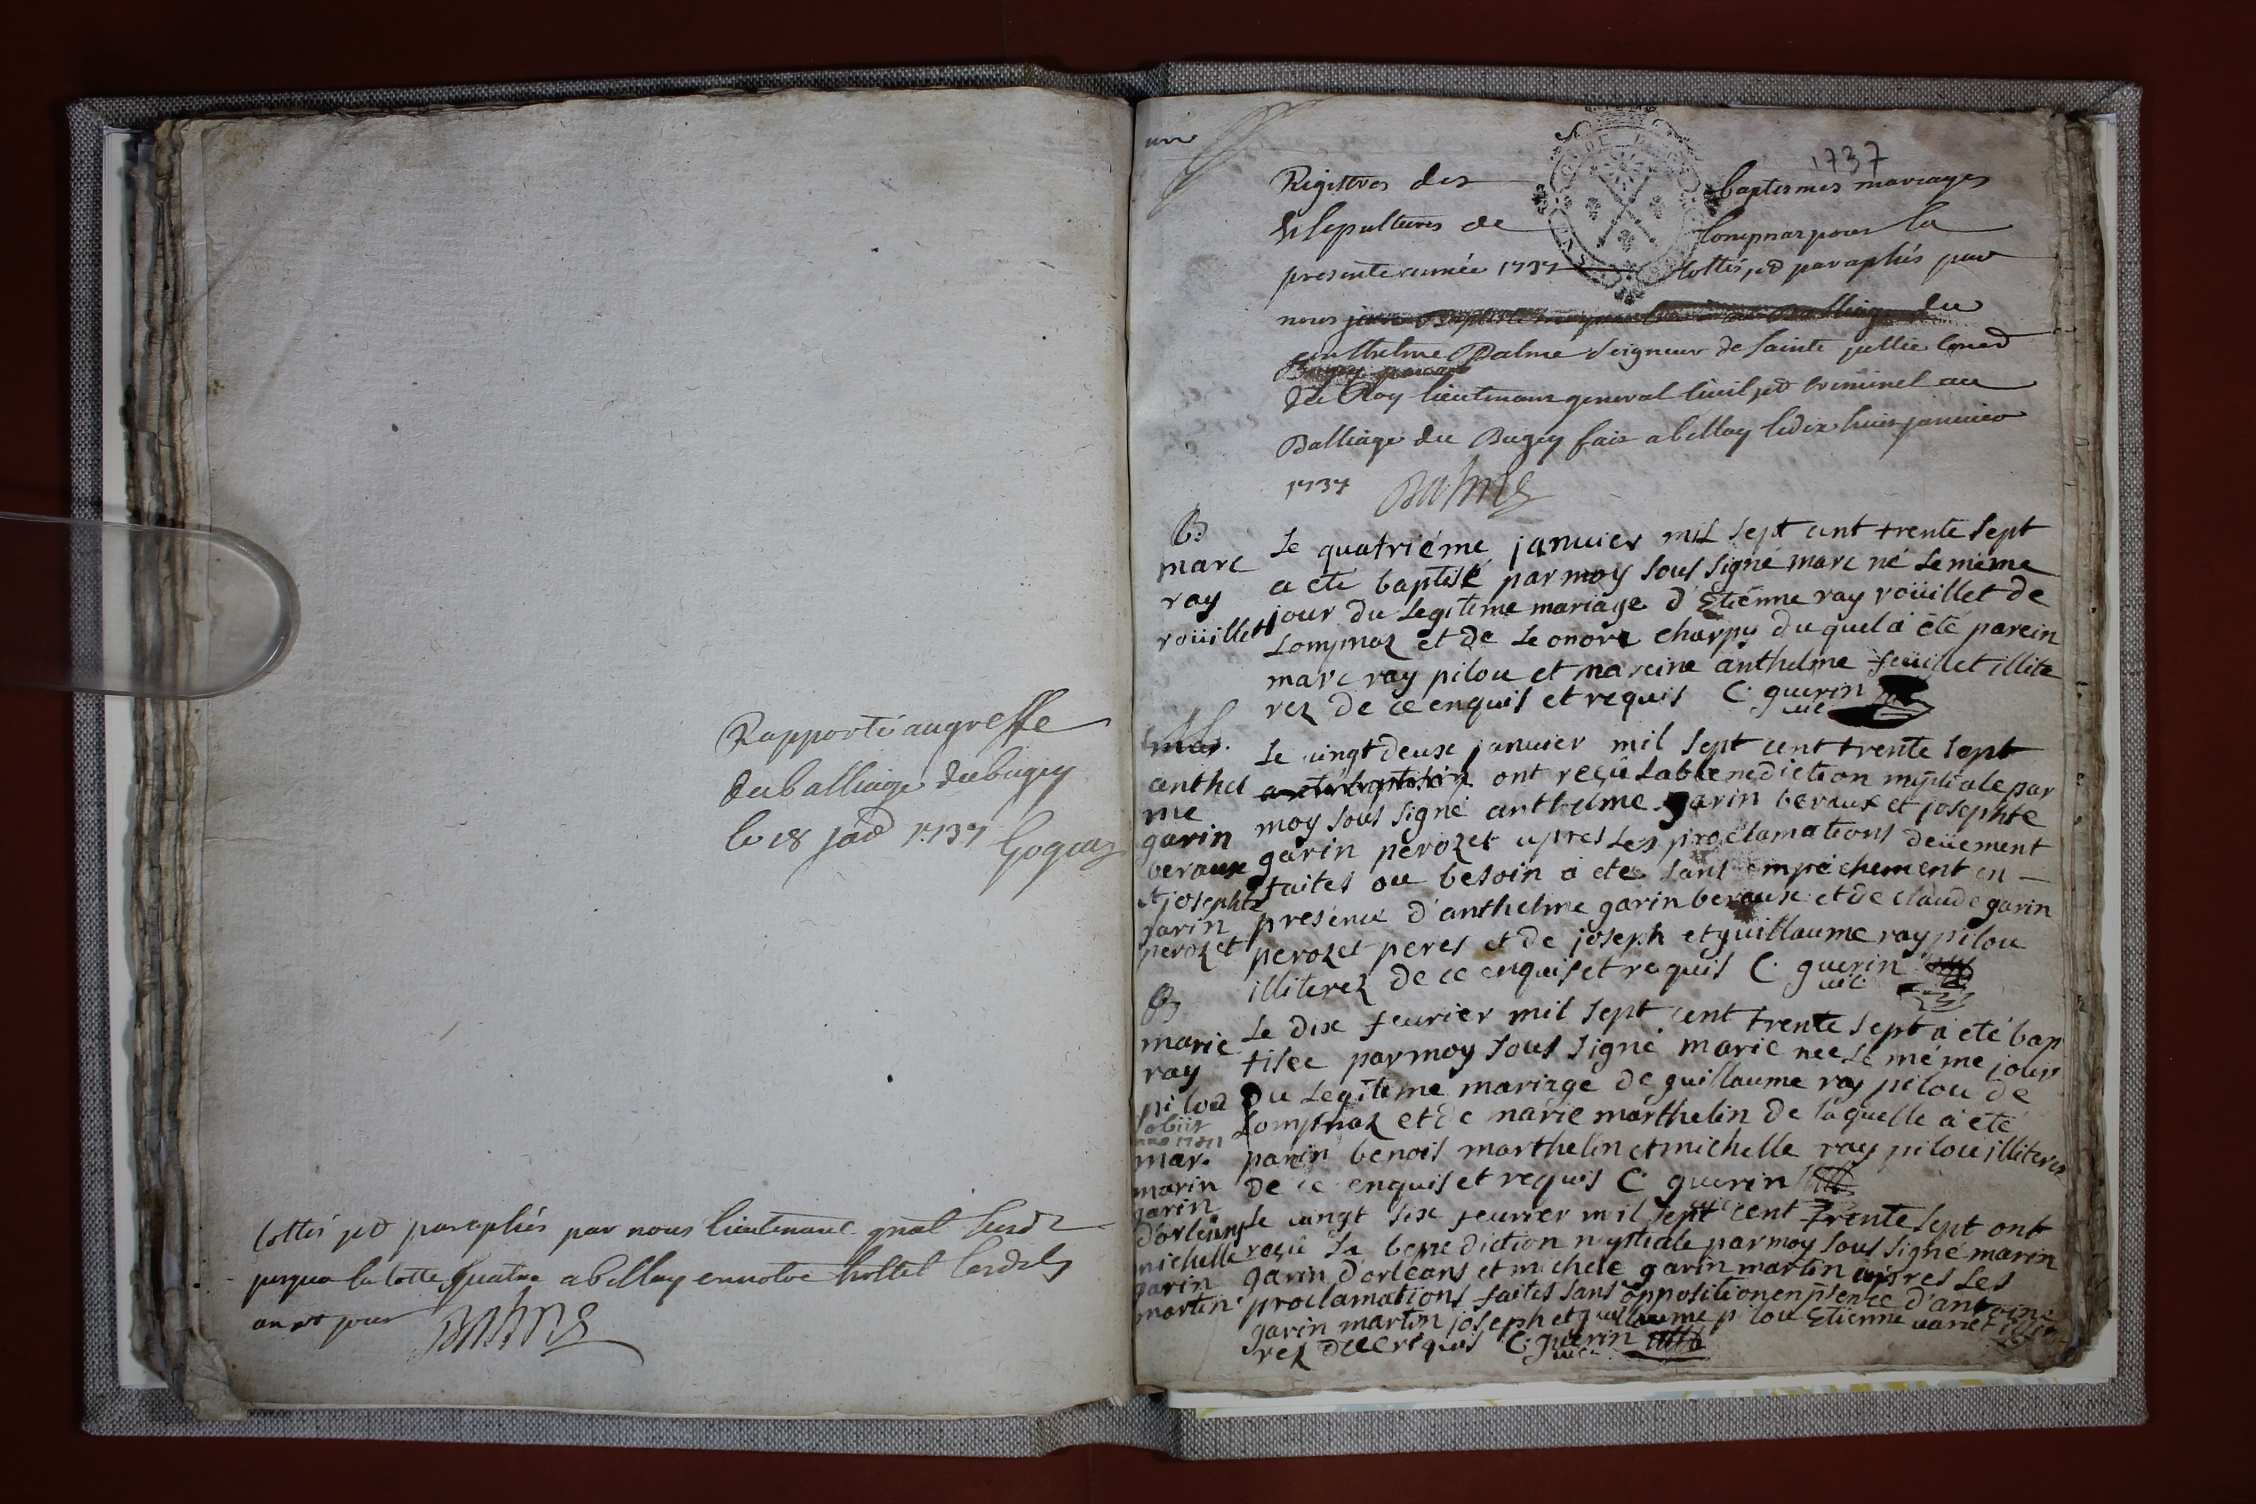 Rapporté au greffe
du balliage du bugey
le 18 jad 1737 Goguaz
Cottés et paraphés par nous lieutenant gnâl susdt
jusques la cotte quatre a bellay en notre hottel lesdits
an et jour
une
1737
Registres des baptesmes mariages
et sepultures de Lompnaz pour la
presente année 1737 Cottés et paraphés par
nous du
anthelme Balme seigneur de sainte jullie
Bugey
du Roy lieutenant general civil et criminel au
Balliage du Bugey fait a bellay le dix huit janvier
1737 Balme
B
marc
ray
roüillet
Le quatriéme janvier mil sept cent trente sept
a eté baptisé par moy sous signé marc né le même
jour du Legitime mariage d'Etiénne ray roüillet de
Lompnaz et de Leonore charpy du quel a été parein
marc ray pilou et mareine anthelme feüillet illite
rez de ce enquis et requis C. guerin
vic
mar.
anthel
me
garin
beraux
et josephte
garin
perozet
Le vingt deux janvier mil sept cent trente sept
ont reçû la benediction nuptiale par
moy sous signé anthelme garin beraux et josephte
garin perozet apres Les proclamations deüement
faites ou besoin a eté sans empéchement en
presence d'anthelme garin beraux et de claude garin
perozet peres et de joseph et guillaume ray pilou
illiterez de ce enquis et requis C. guerin
vic.
B
marie
ray
pilou
obiit
1737
Le dix feurier mil sept cent trente sept a été bap
tisée par moy sous signé marie née le même jour
du Legitime mariage de guillaume ray pilou de
Lompnaz et de marie marthelin de laquelle a été
parin benois marthelin et michelle ray pilou illiterez
de ce enquis et requis C. guerin
mar.
marin
garin
d'orleans
michelle
garin
martin
Le vingt six feurier mil sept cent trente sept ont
reçû La benediction nuptiale par moy sous signé marin
garin d'orleans et michele garin martin apres Les
proclamations faites sans opposition en psence d'antoine
garin martin joseph et guillaume pilou Etienne
rez de ce requis C. guerin
vic.